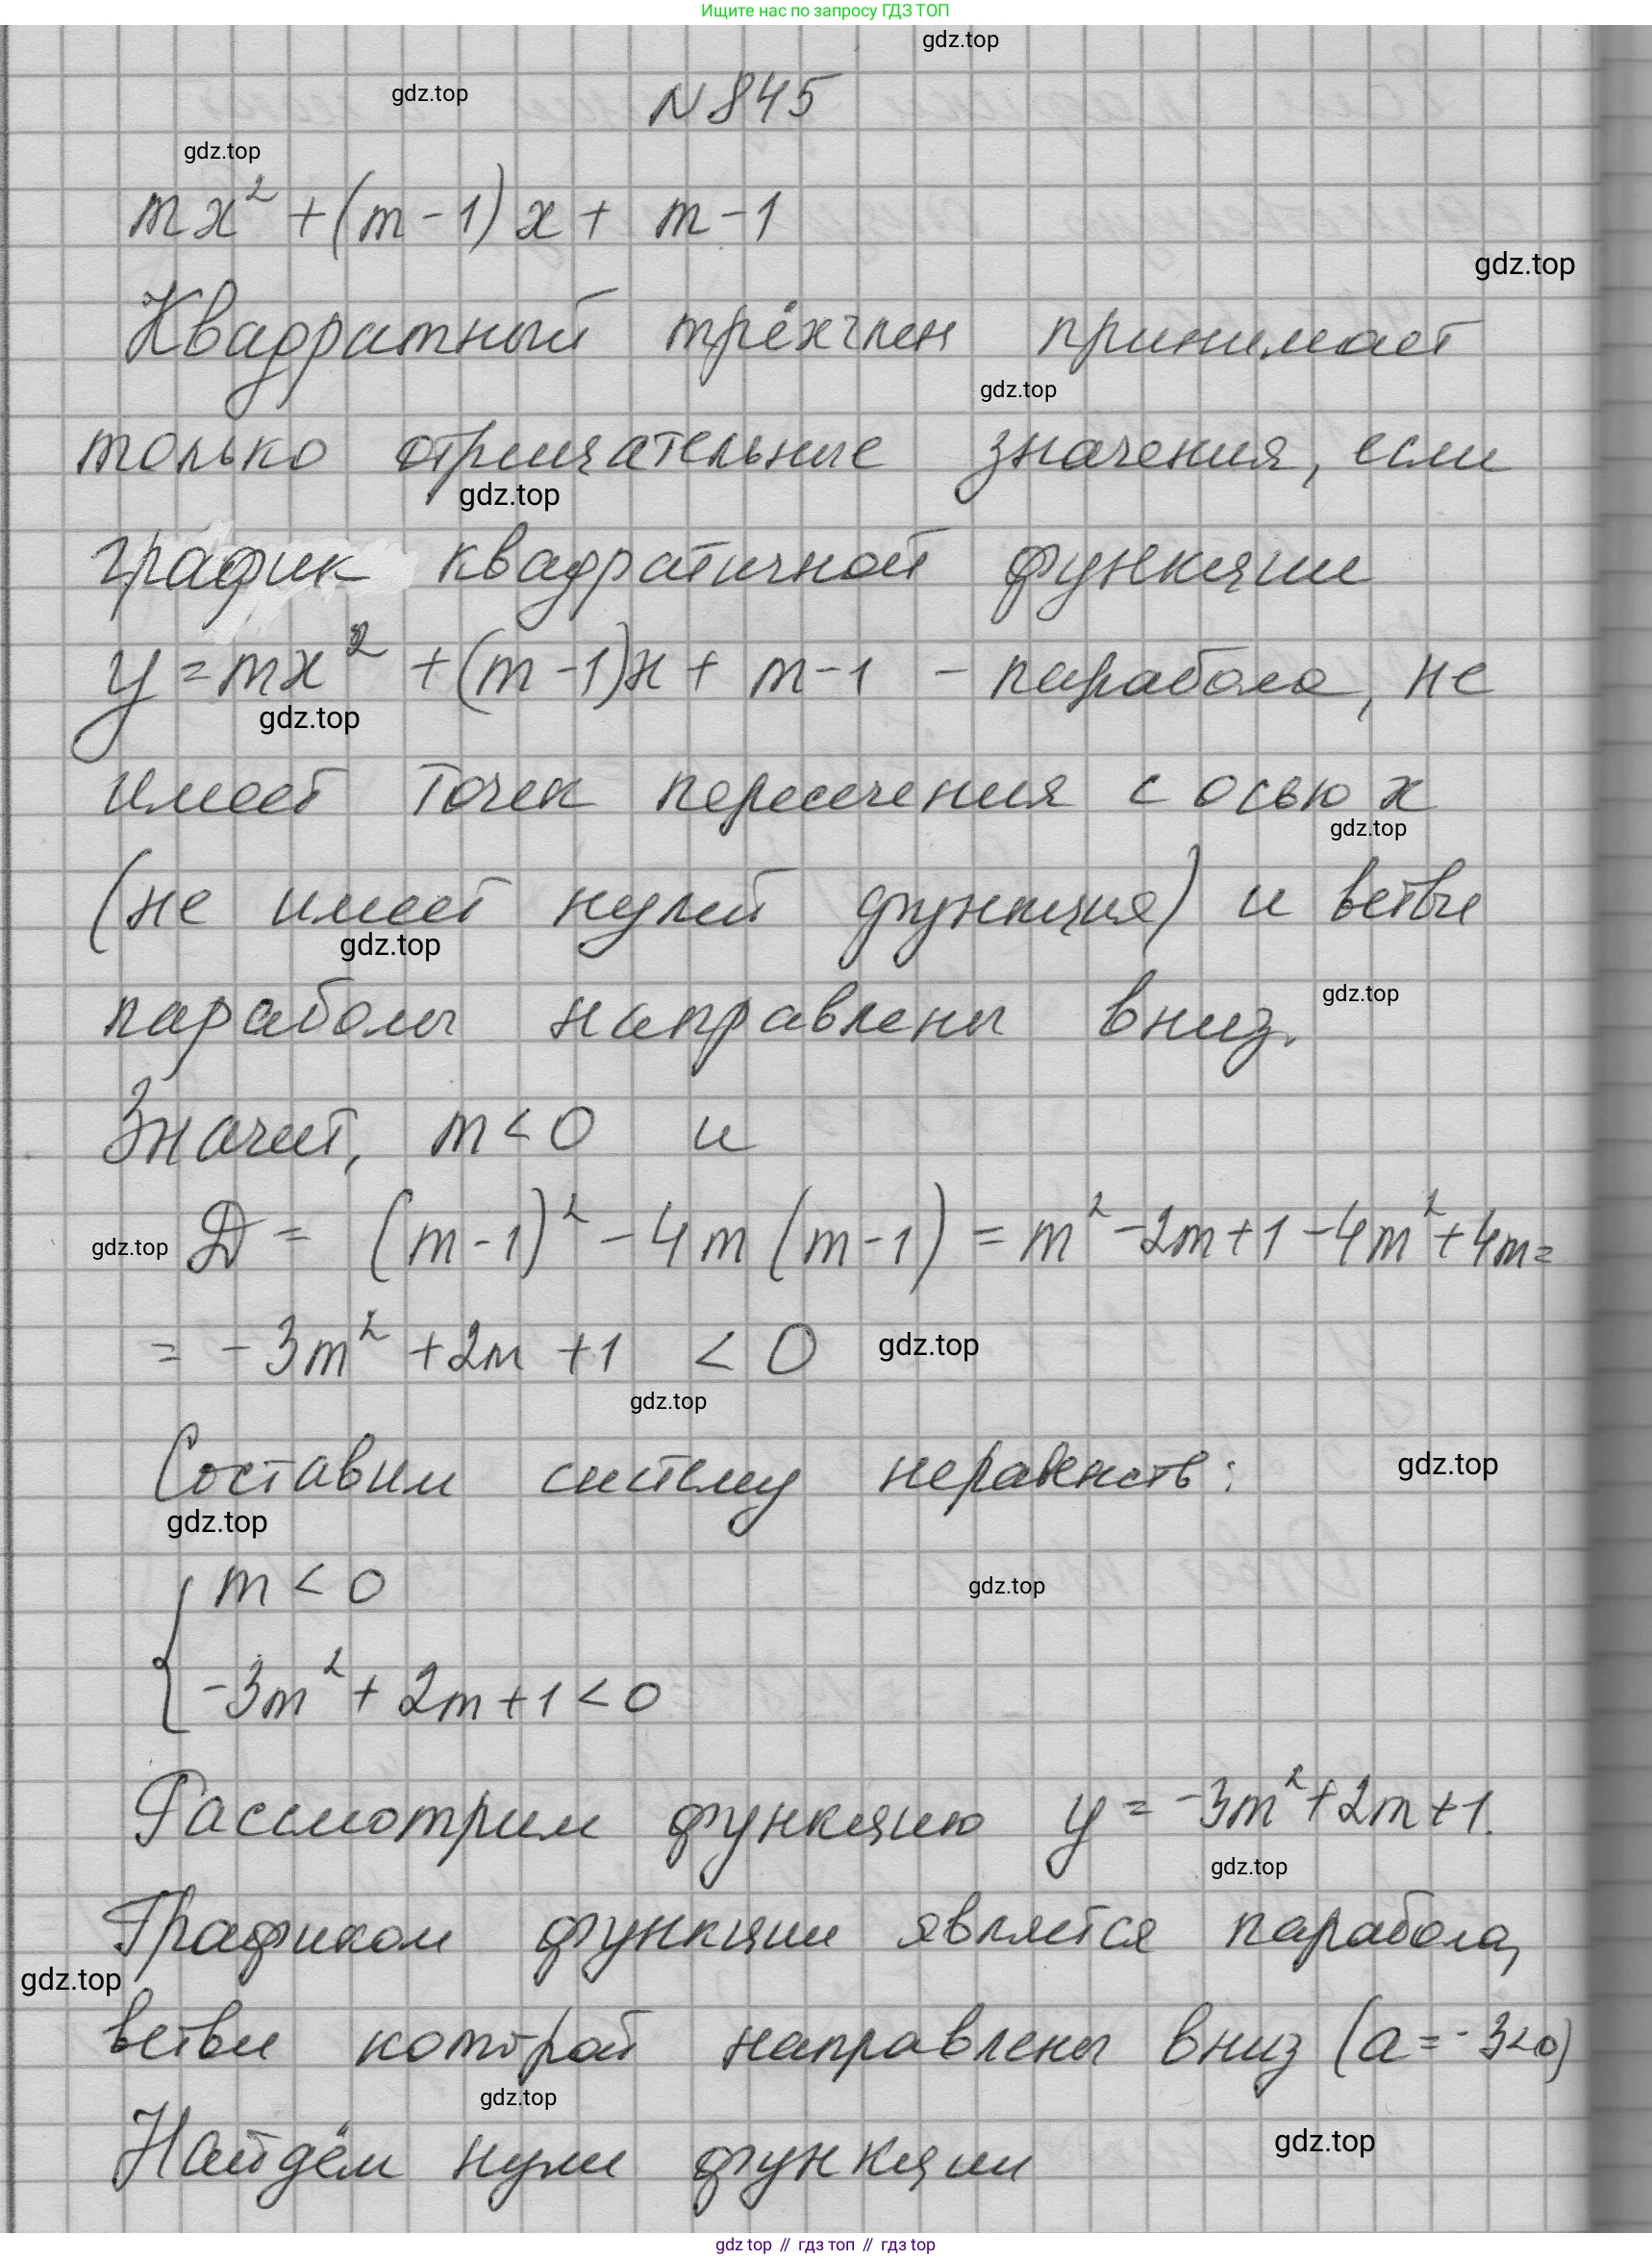 Ищите нас по запросу ГДЗ ТОП
gdz.top
N 845
gdz.top
gdz.top
mx² + (m - 1)x + m - 1
gdz.top
Квадратный трёхчлен принимает
gdz.top
только отрицательные значения, если
gdz.top
график квадратичной функции
y = mx² + (m - 1)x + m - 1 - парабола, не
gdz.top
имеет точек пересечения с осью x
gdz.top
(не имеет нулей функция) и ветви
gdz.top
параболы направлены вниз.
gdz.top
Значит, m < 0 и
D = (m - 1)² - 4m (m - 1) = m² - 2m + 1 - 4m² + 4m =
gdz.top
= - 3m² + 2m + 1 < 0
gdz.top
gdz.top
Составим систему неравенств:
gdz.top
gdz.top
{ m < 0
gdz.top
-3m² + 2m + 1 < 0
Рассмотрим функцию y = -3m² + 2m + 1.
gdz.top
Графиком функции является парабола,
gdz.top
ветви которой направлены вниз (a = -3<0)
gdz.top
Найдём нули функции
gdz.top
gdz top // гдз топ // гдз top